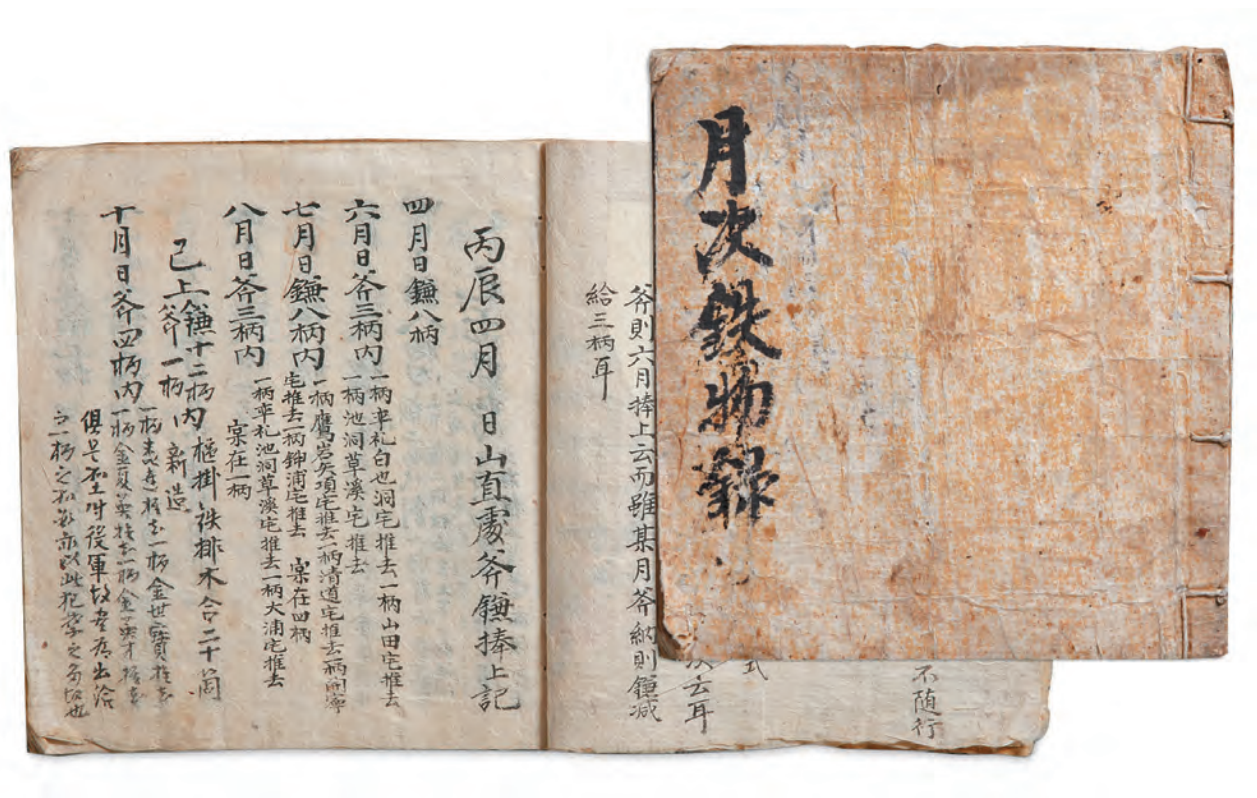 月次鉄物錄
不随行
式
去耳
斧則六月捧上云而雖某月斧納則鎌减
給三柄耳
丙辰四月 日山直處斧鎌捧上記
四月日鎌八柄
六月日斧三柄内
一柄率礼白也洞宅推去一柄山田宅推去
一柄池洞草溪宅推去
七月日鎌八柄内
一柄鷹岩矢項宅推去一柄清道宅推去一柄開寧
宅推去一柄鉀浦宅推去 宲在四柄
八月日斧三柄内
一柄率礼池洞草溪宅推去一柄大浦宅推去
宲在一柄
已上鎌十二柄内 樞掛鉄排木合二十箇
斧一柄 新造
十月日斧四柄内
一柄推去一柄金世寶推去
一柄金夏英推去一柄金英才推去